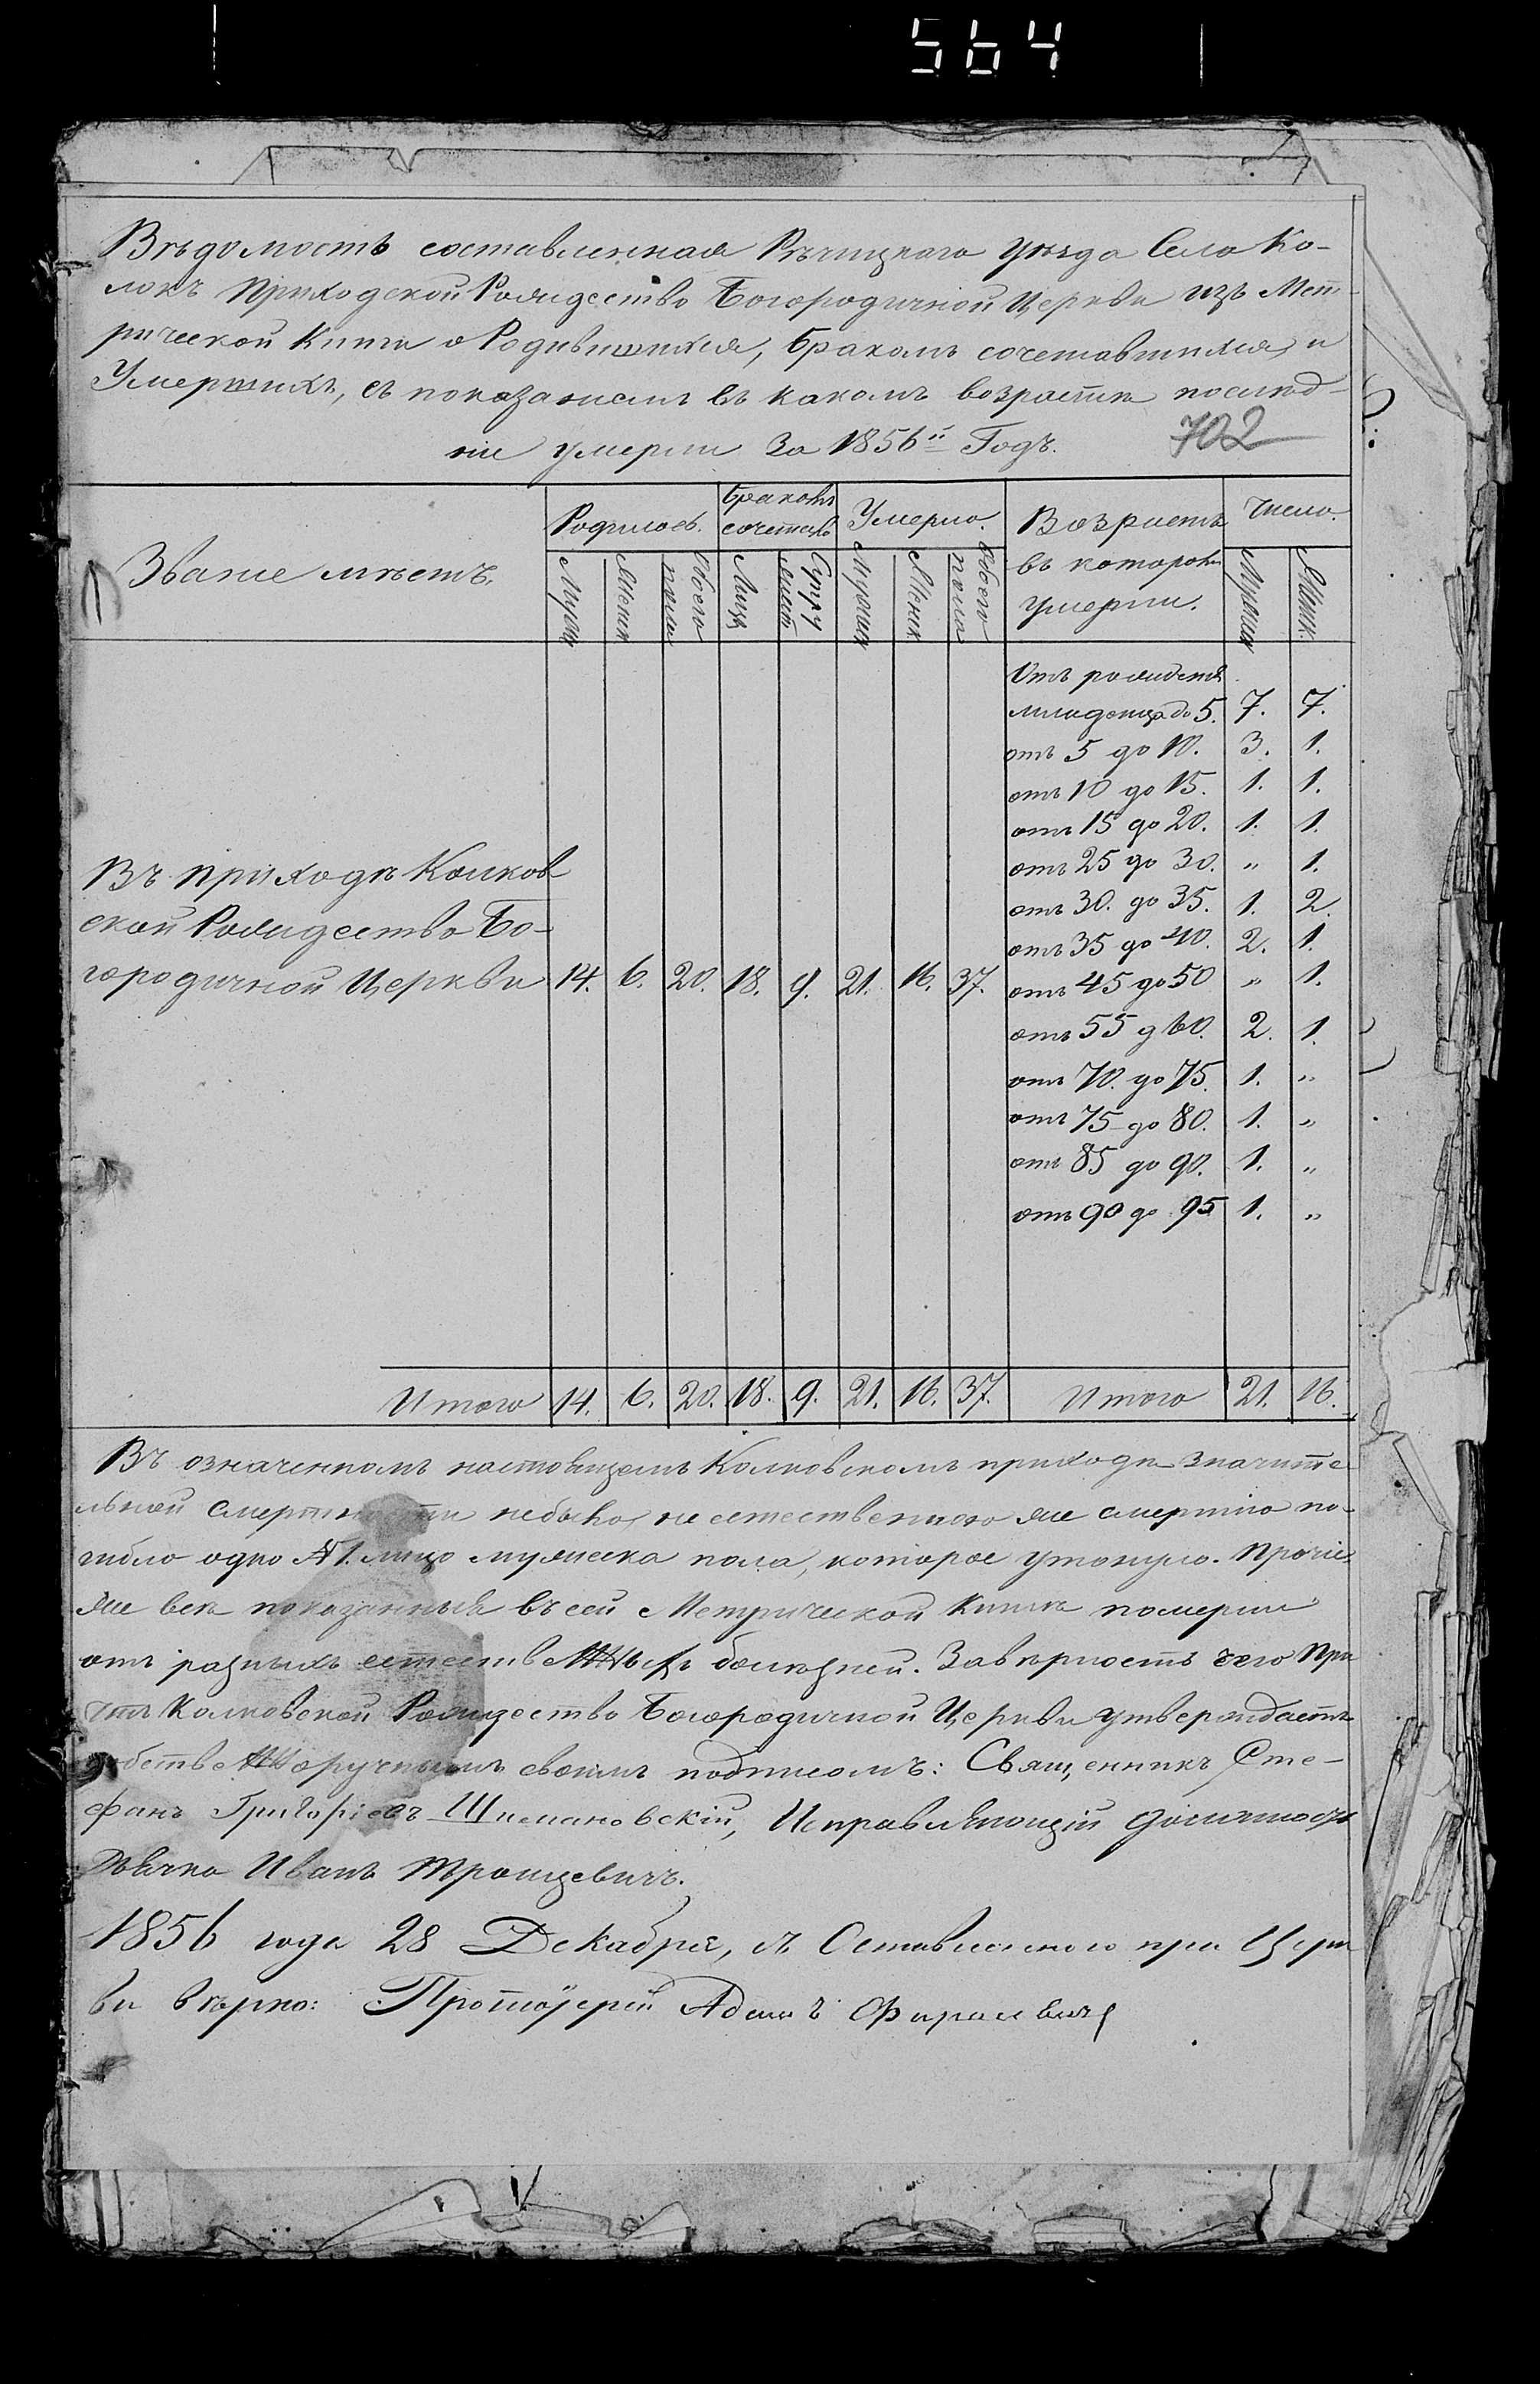 564
Вѣдомость составленная Рѣчицкаго уѣзда Села Ко-
локъ Приходской Рождество Богородичной Церкви изъ Мет-
рической Книги о Родившихся, бракомъ сочетавшихся, и
Умершихъ, съ показанiемъ въ какомъ возрастѣ послѣд-
нiе умерли За 1856й Годъ. 702
Званiе мѣстъ. Родилось. Бракомъ сочетало Умерло. Возрастъ въ которомъ умерли. Число.
Мужск Женск Обоего пола Лицъ Супру жест Мужск Женск Обоего пола Мужск Женск.
Отъ рождетя
младенца до 5. 7. 7.
отъ 5 до 10. 3. 1.
отъ 10 до 15. 1. 1.
отъ 15 до 20. 1. 1.
отъ 25 до 30. „ 1.
отъ 30. до 35. 1. 2.
отъ 35 до 40. 2. 1.
отъ 45 до 50 „ 1.
отъ 55 д 60. 2. 1.
отъ 70. до 75. 1. „
отъ 75 до 80. 1. „
отъ 85 до 90. 1. „
отъ 90 до 95 1. „
Въ приходѣ Колков
ской Рождество Бо-
городичной Церкви 14. 6. 20. 18. 9. 21. 16. 37.
Итого 14. 6. 20. 18. 9. 21. 16. 37. Итого 21. 16.
Въ означенномъ настоящемъ Колковскомъ приходѣ значите
льной смертности небыло, не естественною же смертiю по-
гибло одно №1. лицо мужеска пола, которое утонуло. Прочiе
же всѣ показанныя въ сей Метрической Книгѣ померли
отъ разныхъ естественныхъ болѣзней. Завѣрность чего При
чтъ Колковской Рождество Богородичной Церкви утверждаетъ
собственноручнымъ своимъ подписомъ: Священникъ Сте-
фанъ Григорiевъ Шимановскiй, Исправляющiй должность
Дьячка Иванъ Троицевичъ.
1856 года 28 Декабря, съ Оставленного при Церк
ви вѣрно: Протоiерей Адамъ Фирсевичъ